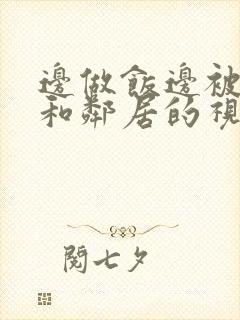 邊做飯邊被
和鄰居的視
閱七夕